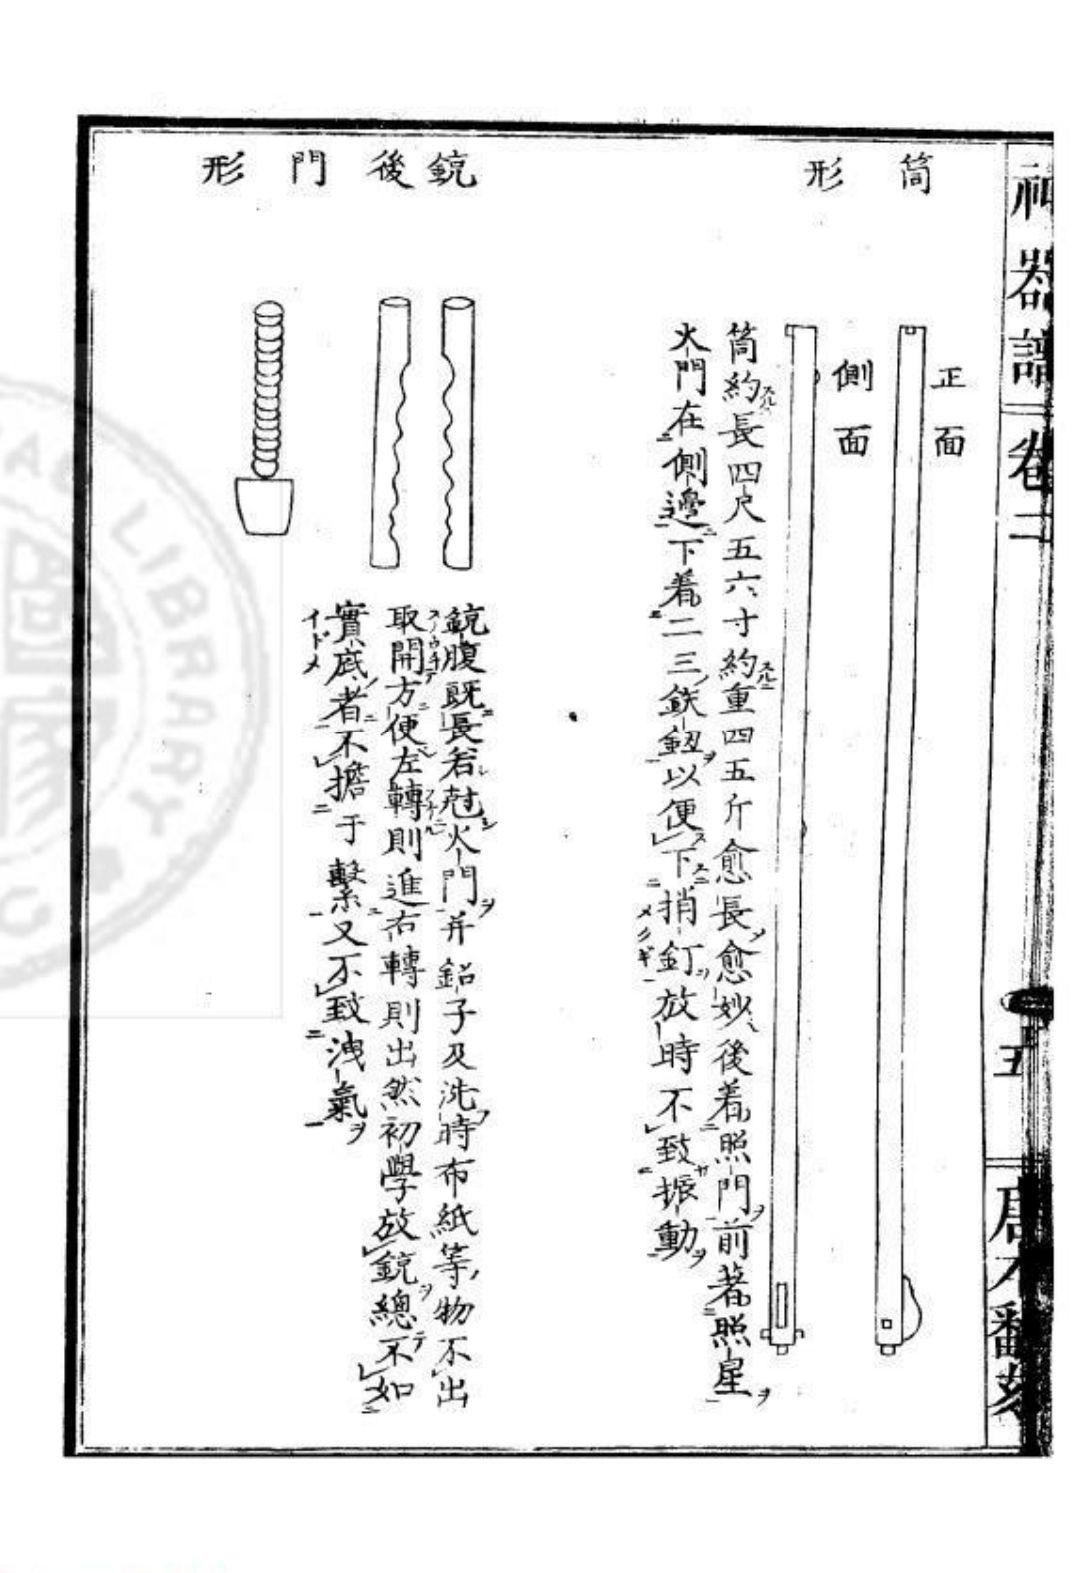 神器譜
卷二
五
唐本翻刻
筒形
正面
側面
筒約長四尺五六寸約重四五斤愈長愈妙後着照門前著照星
火門在側邊下着二三鉄鈕以便下捎釘放時不致振動
銃後門形
銃腹既長若尅火門并鉛子及洗時布紙等物不出
取開方便左轉則進右轉則出然初學放銃總不如
實底者不擔于繫又不致洩氣
LIBRARY